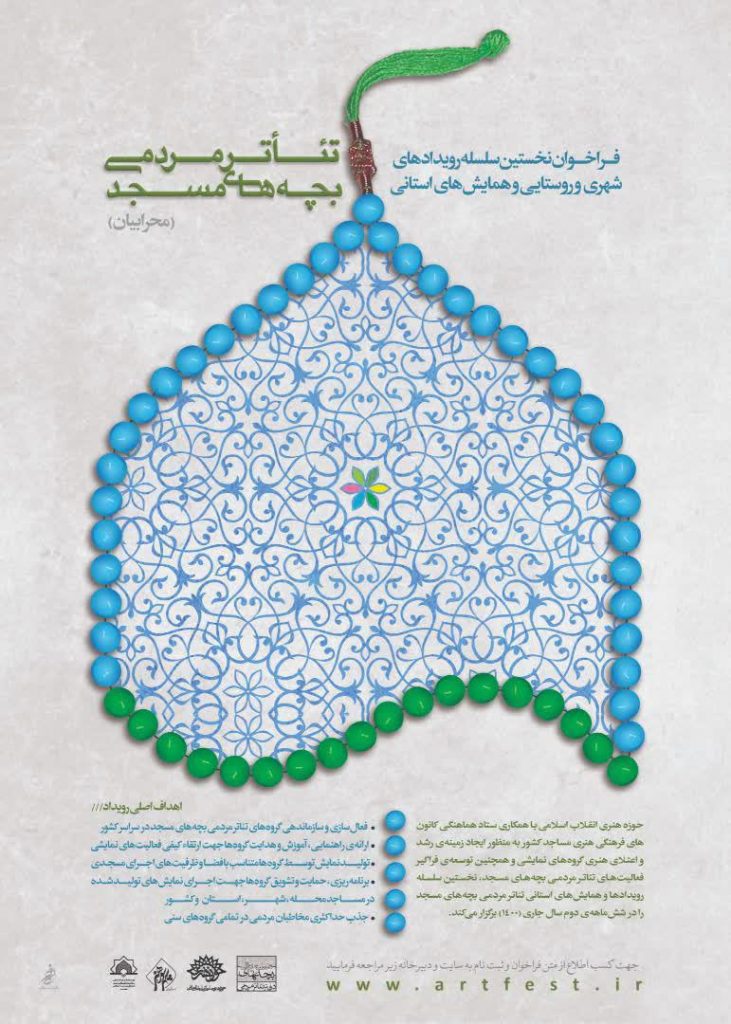 فراخوان نخستین سلسله رویدادهای
شهری و روستایی و همایش‌های استانی
تئاتر مردمی
بچه‌های مسجد
(محرابیان)
حوزه هنری انقلاب اسلامی با همکاری ستاد هماهنگی کانون
های فرهنگی هنری مساجد کشور به منظور ایجاد زمینه‌ی رشد
و اعتلای هنری گروه‌های نمایشی و همچنین توسعه‌ی فراگیر
فعالیت‌های تئاتر مردمی بچه‌های مسجد، نخستین سلسله
رویدادها و همایش‌های استانی تئاتر مردمی بچه‌های مسجد
را در شش‌ماهه‌ی دوم سال جاری (۱۴۰۰) برگزار می‌کند.
اهداف اصلی رویداد///
• فعال‌سازی و سازماندهی گروه‌های تئاتر مردمی بچه‌های مسجد در سراسر کشور
• ارائه‌ی راهنمایی، آموزش و هدایت گروه‌ها جهت ارتقاء کیفی فعالیت‌های نمایشی
• تولید نمایش توسط گروه‌ها متناسب با فضا و ظرفیت‌های اجرای مسجدی
• برنامه‌ریزی، حمایت و تشویق گروه‌ها جهت اجرای نمایش‌های تولید شده
در مساجد محله، شهر، استان و کشور
• جذب حداکثری مخاطبان مردمی در تمامی گروه‌های سنی
جهت کسب اطلاع از متن فراخوان و ثبت نام به سایت و دبیرخانه زیر مراجعه فرمایید
www.artfest.ir